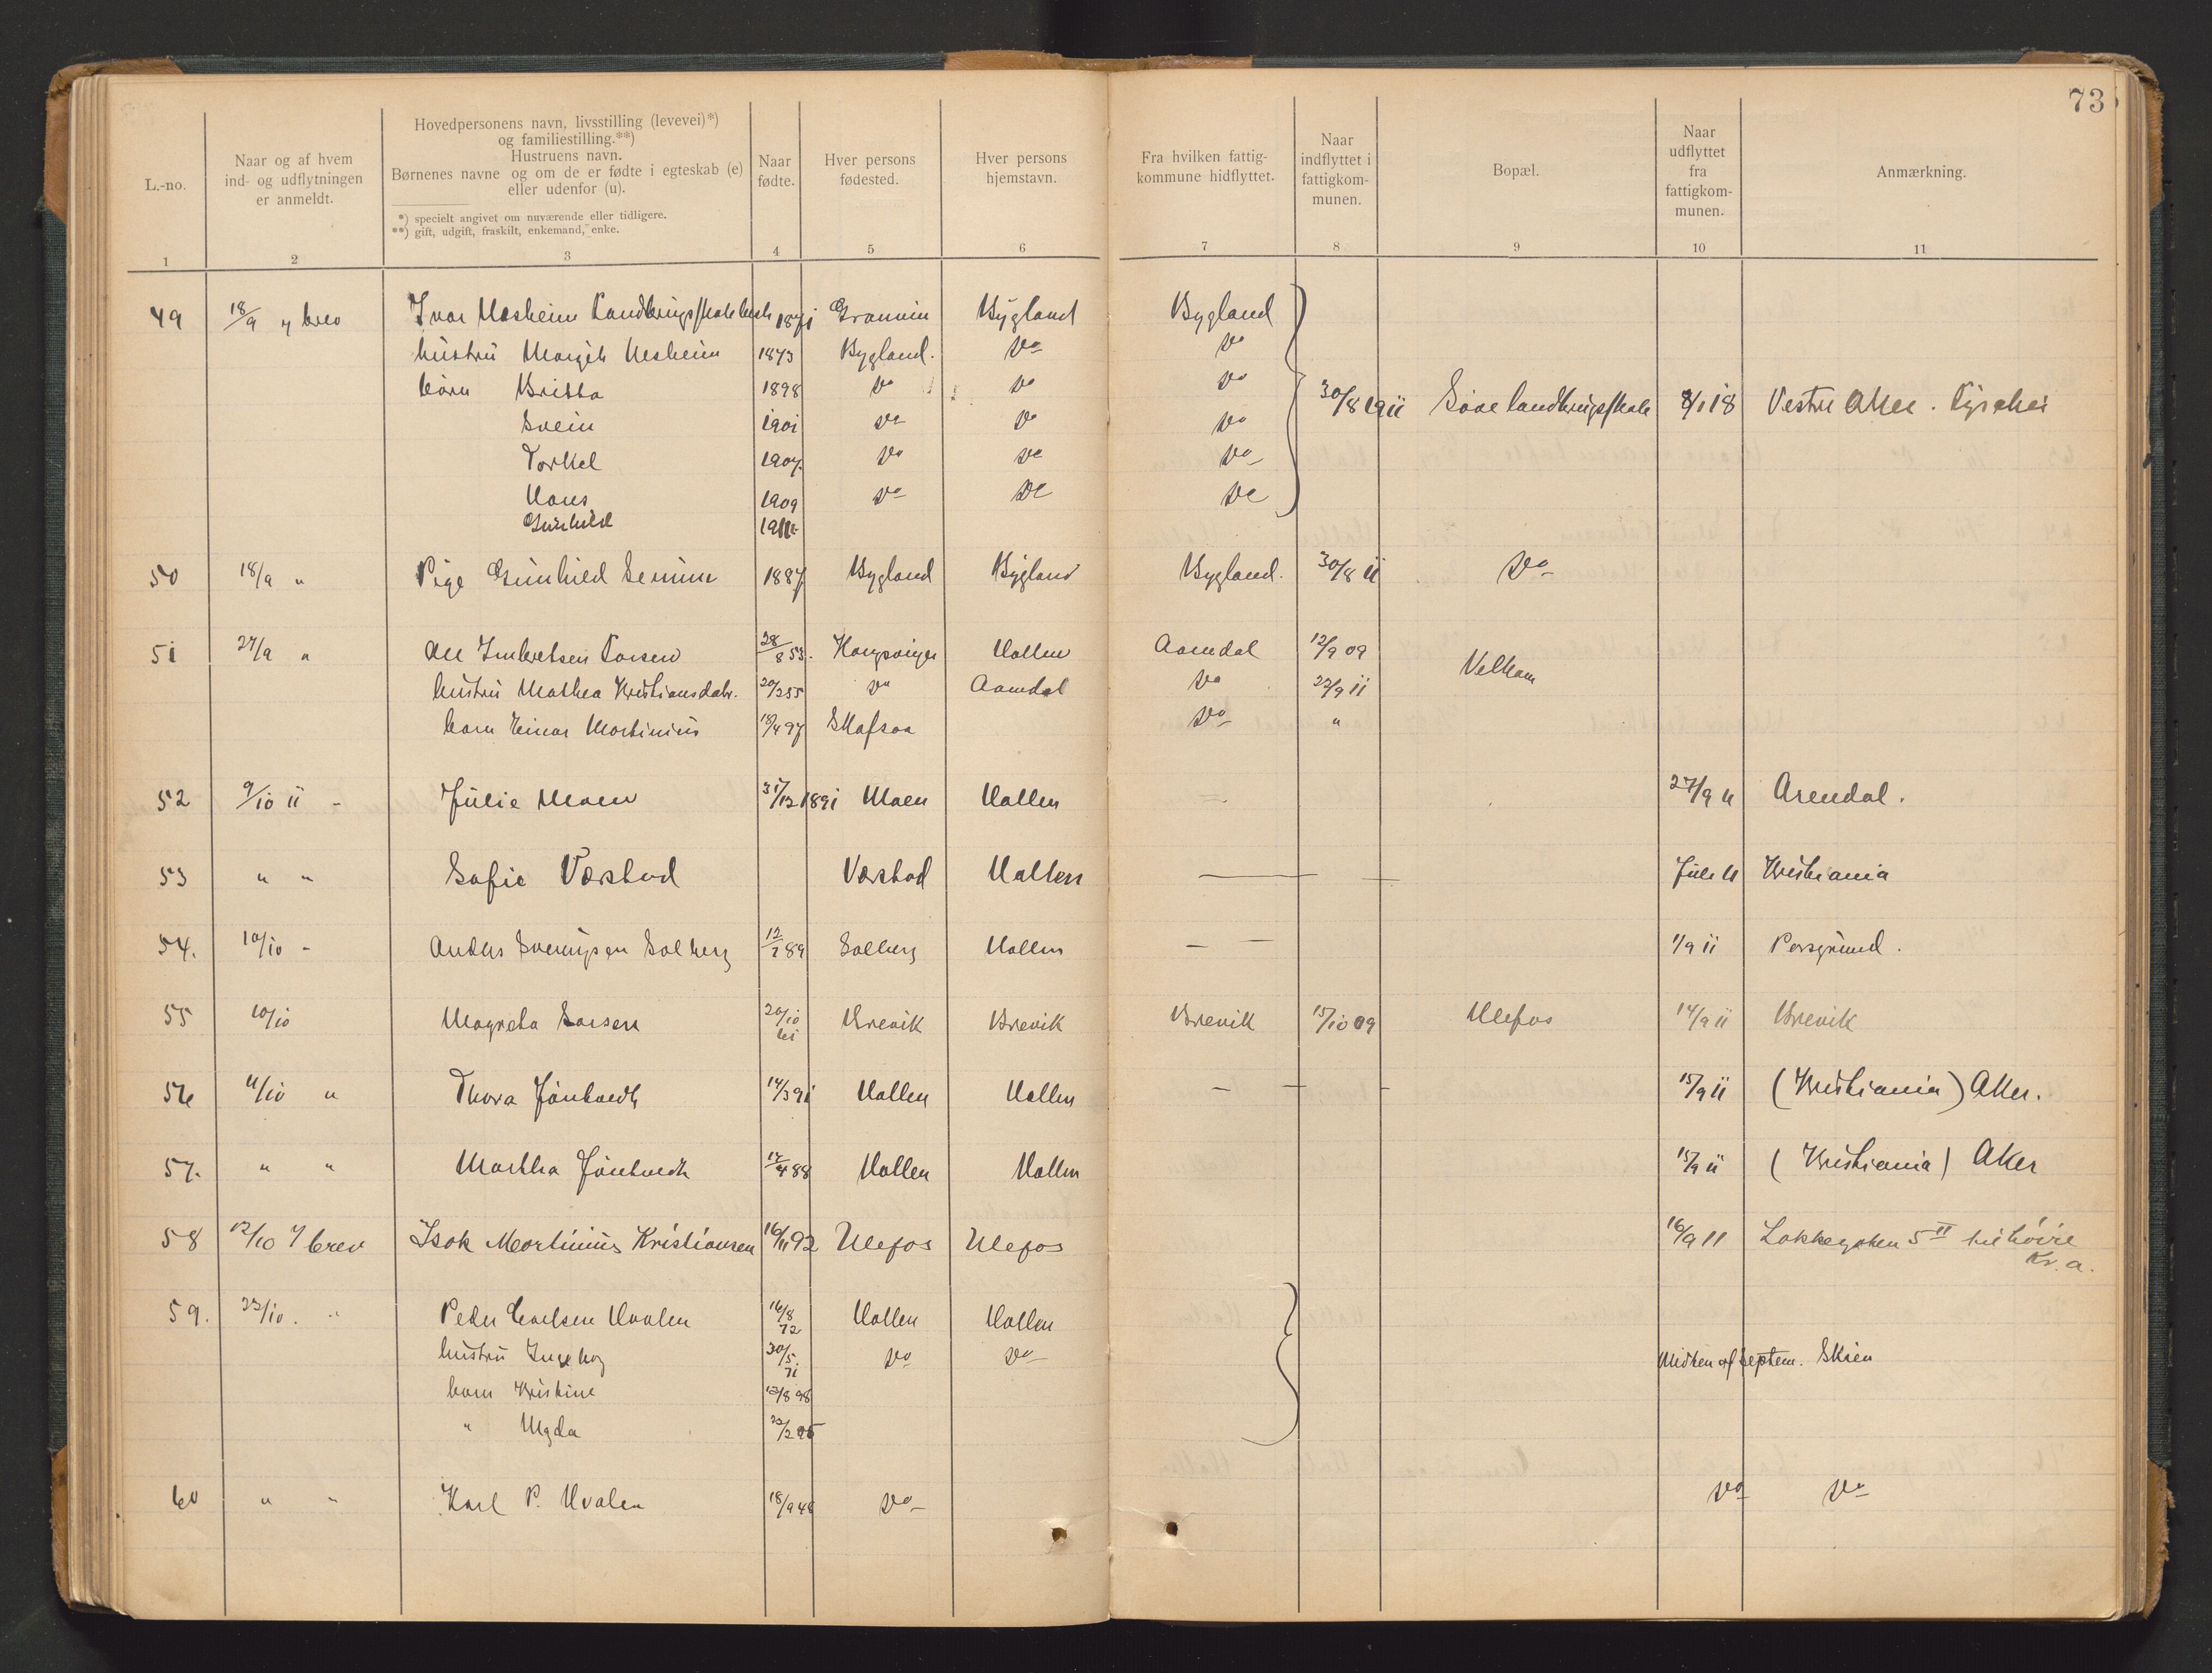 73
L.-no.
Naar og af hvem
ind- og udflytningen
er anmeldt.
Hovedpersonens navn, livsstilling (levevei)*)
og familiestilling.**)
Hustruens navn.
Børnenes navne og om de er fødte i egteskab (e)
eller udenfor (u).
*) specielt angivet om nuværende eller tidligere.
**) gift, udgift, fraskilt, enkemand, enke.
Naar
fødte.
Hver persons
fødested.
Hver persons
hjemstavn.
Fra hvilken fattig-
kommune hidflyttet.
Naar
indflyttet i
fattigkom-
munen.
Bopæl.
Naar
udflyttet
fra
fattigkom-
munen.
Anmærkning.
1 2 3 4 5 6 7 8 9 10 11
49 18/9 brev Ivar 1871 Granvin Bygland Bygland
hustru Margit Nesheim 1873 Bygland. Do Do
børn Britta 1898 Do Do Do 30/8 1911 Søve landbrugsskole 8/1 18 Vestre Aker.
Svein 1901 Do Do Do
Torkel 1907 Do Do Do
Hans 1909 Do Do Do
Gunhild
50 18/9 " Pige Gunhild 1887 Bygland Bygland Bygland. 30/8 11 Do
51 27/9 " Larsen 28/8 53. Kongsvinger Hollen Aamdal 12/9 09
hustru Mathea Kristiansdatr. 20/2 55 Do Aamdal Do 22/9 11
barn Einar Martinius 18/4 97 Skafsaa Do "
52 9/10 11 - Julie Moen 31/12 1891 Moen Hollen 27/9 11 Arendal.
53 " " Sofie Værstad Værstad Hollen Juli 11 Kristiania
54. 10/10 - Anders Solberg 12/7 89 Solberg Hollen 1/9 11 Porsgrund.
55 10/10 Magreta Larsen 20/10 Brevik Brevik Brevik 15/10 09 Ulefos 14/9 11 Brevik
56 11/10 " Thora 14/3 91 Hollen Hollen 15/9 11 (Kristiania) Aker.
57. " " Martha 14/4 88 Hollen Hollen 15/9 11 (Kristiania) Aker
58 12/10 brev Isak Martinius Kristiansen 16/11 92 Ulefos Ulefos 16/9 11 Løkkegaten 5 II til høire
Kr.a.
59. 23/10. " Peder Hvalen 16/8 72 Hollen Hollen
hustru Ingeborg 30/5. 71 Do Do Midten af Septem. Skien
barn Kristine 12/8 98
"
60 " " Karl P. Hvalen 18/9 48 Do Do Do